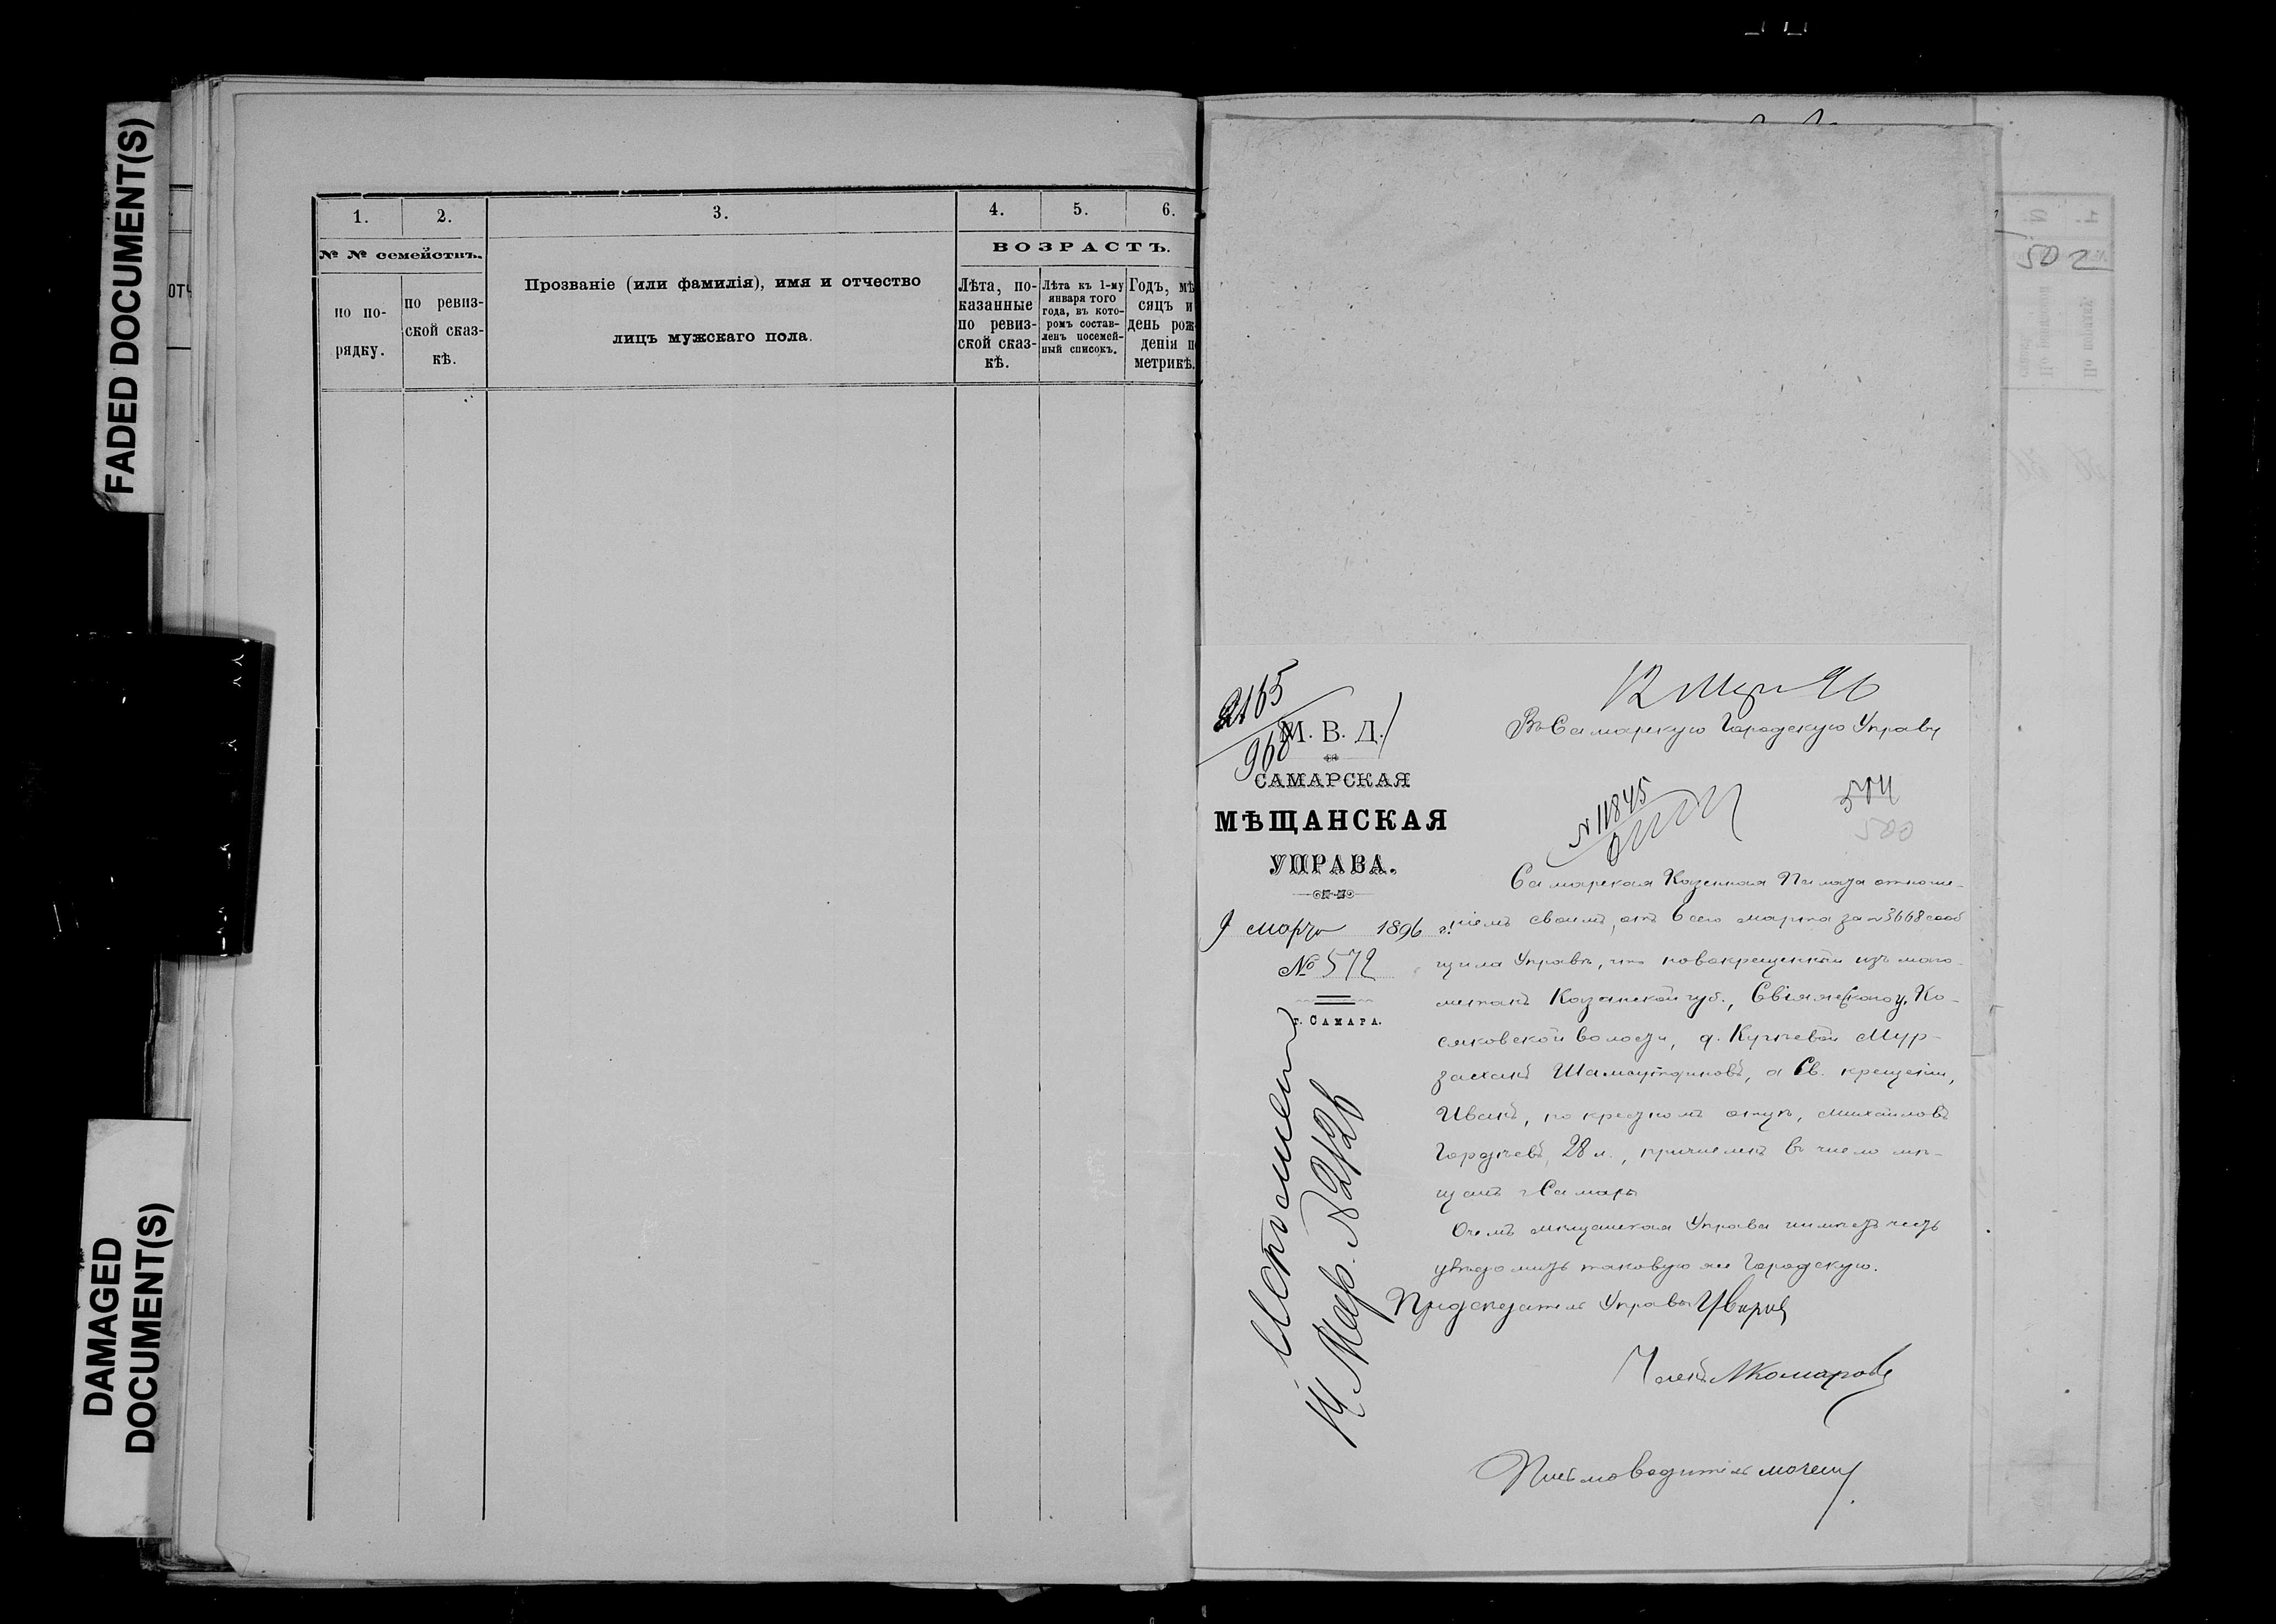 FADED DOCUMENT(S)
DAMAGED
DOCUMENT(S)
1.
2.
3.
4.
5.
6.
№ № семействъ.
ВОЗРАСТЪ.
по по-
рядку.
по ревиз-
ской сказ-
кѣ.
Прозваніе (или фамилія), имя и отчество
лицъ мужскаго пола.
Лѣта, по-
казанные
по ревиз-
ской сказ-
кѣ.
Лѣта къ 1-му
января того
года, въ кото-
ромъ состав-
ленъ посемей-
ный списокъ.
Годъ, мѣ
сяцъ и
день рож
денія п
метрикѣ.
502
2165
968
М. В. Д.
САМАРСКАЯ
МѢЩАНСКАЯ
УПРАВА.
9 марта 1896 г.
№ 572
г. САМАРА.
12 Мар 96
Въ Самарскую Городскую Управу
N 11845
504
500
Самарская Казенная Палата отноше-
ніемъ своимъ, отъ 6 сего марта за N 3668 сооб
щила Управѣ, что новокрещенный изъ маго-
метанъ Казанской губ., Свіяжскаго у.
волости, д.  Мур-
заханъ Шамсутдиновъ, а Св. крещеніи,
Иванъ, по крестномъ отцѣ, Михайловъ
Гордѣевъ, 28 л., причисленъ въ число мѣ-
щанъ г. Самары
О чемъ мѣщанская Управа имѣетъ честь
увѣдомить таковую же Городскую.
Предсѣдатель Управы
Членъ Комаровъ
Письмоводитель
14 Мар. N 2126